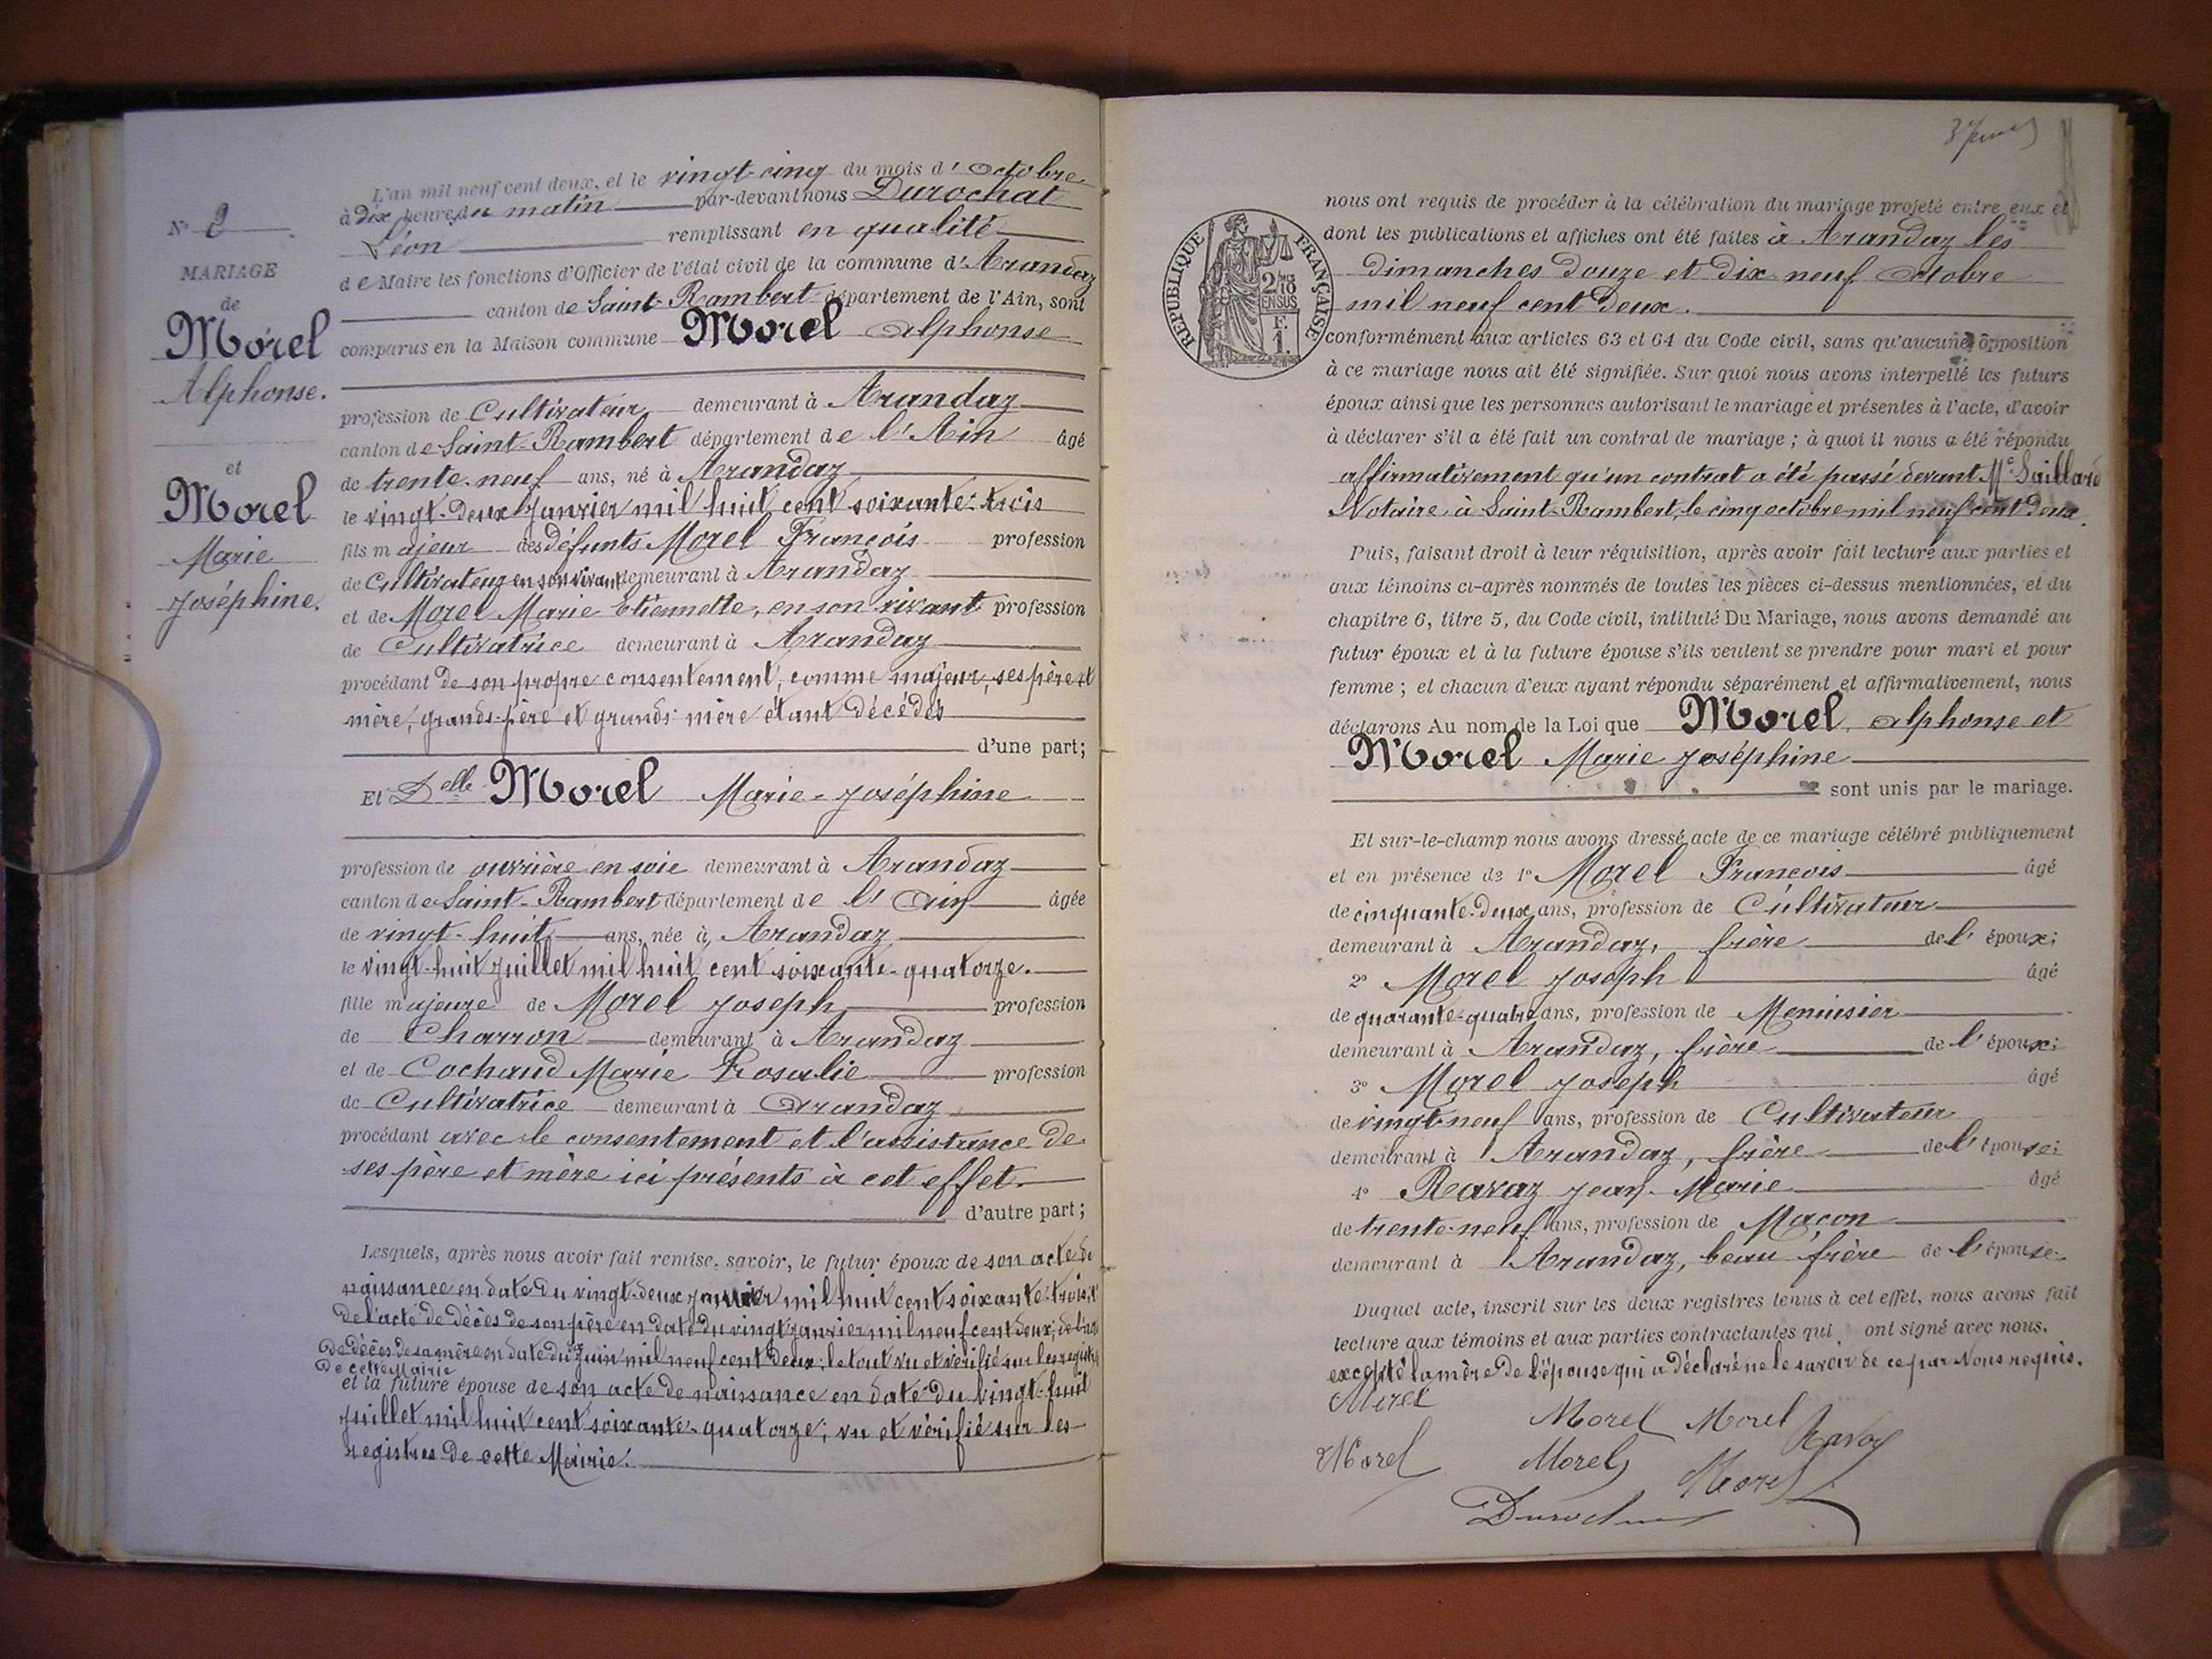 N° 2
MARIAGE
de
Morel
Alphonse.
et
Morel
Marie
Joséphine.
L'an mil neuf cent deux, et le vingt-cinq du mois d'Octobre
à dix heures du matin par-devant nous Durochat
Léon remplissant en qualité
de Maire les fonctions d'Officier de l'état civil de la commune d'Arandaz
canton de Saint-Rambert département de l'Ain, sont
comparus en la Maison commune Morel Alphonse
profession de Cultivateur demeurant à Arandaz
canton de Saint-Rambert département de l'Ain âgé
de trente-neuf ans, né à Arandaz
le vingt-deux Janvier mil huit cent soixante-trois
fils majeur des défunts Morel François profession
de Cultivateur en son vivant demeurant à Arandaz
et de Morel Marie Etiennette, en son vivant profession
de Cultivatrice demeurant à Arandaz
procédant de son propre consentement, comme majeur, ses père et
mère, grands-père et grands-mère étant décédés
d'une part;
Et Delle Morel Marie-Joséphine
profession de ouvrière en soie demeurant à Arandaz
canton de Saint-Rambert département de l'Ain âgée
de vingt-huit ans, née à Arandaz
le vingt-huit juillet mil huit cent soixante-quatorze.
fille majeure de Morel Joseph profession
de Charron demeurant à Arandaz
et de Cochaud Marie Rosalie profession
de Cultivatrice demeurant à Arandaz
procédant avec le consentement et l'assistance de
ses père et mère ici présents à cet effet.
d'autre part;
Lesquels, après nous avoir fait remise, savoir, le futur époux de son acte de
naissance en date du vingt-deux janvier mil huit cent soixante-trois;
de l'acte de décès de son père en date du vingt janvier mil neuf cent deux; de l'acte
de décès de sa mère en date du juin mil neuf cent deux; le tout vu et vérifié sur les registres
de cette Mairie
et la future épouse de son acte de naissance en date du vingt-huit
juillet mil huit cent soixante-quatorze; vu et vérifié sur les
registres de cette Mairie.
RÉPUBLIQUE FRANÇAISE
2/10
EN SUS
F.
1.
nous ont requis de procéder à la célébration du mariage projeté entre eux et
dont les publications et affiches ont été faites à Arandaz les
dimanches douze et dix-neuf Octobre
mil neuf cent deux.
conformément aux articles 63 et 64 du Code civil, sans qu'aucune opposition
à ce mariage nous ait été signifiée. Sur quoi nous avons interpellé les futurs
époux ainsi que les personnes autorisant le mariage et présentes à l'acte, d'avoir
à déclarer s'il a été fait un contrat de mariage; à quoi il nous a été répondu
affirmativement qu'un contrat a été passé devant Me Saillard
Notaire à Saint-Rambert, le cinq octobre mil neuf cent deux.
Puis, faisant droit à leur réquisition, après avoir fait lecture aux parties et
aux témoins ci-après nommés de toutes les pièces ci-dessus mentionnées, et du
chapitre 6, titre 5, du Code civil, intitulé Du Mariage, nous avons demandé au
futur époux et à la future épouse s'ils veulent se prendre pour mari et pour
femme; et chacun d'eux ayant répondu séparément et affirmativement, nous
déclarons Au nom de la Loi que Morel, Alphonse et
Morel Marie Joséphine
sont unis par le mariage.
Et sur-le-champ nous avons dressé acte de ce mariage célébré publiquement
et en présence de 1° Morel François âgé
de cinquante-deux ans, profession de Cultivateur
demeurant à Arandaz, frère de l'époux;
2° Morel Joseph âgé
de quarante-quatre ans, profession de Menuisier
demeurant à Arandaz, frère de l'époux;
3° Morel Joseph âgé
de vingt-neuf ans, profession de Cultivateur
demeurant à Arandaz, frère de l'épouse;
4° Ravaz Jean-Marie âgé
de trente-neuf ans, profession de Maçon
demeurant à Arandaz, beau frère de l'épouse
Duquel acte, inscrit sur les deux registres tenus à cet effet, nous avons fait
lecture aux témoins et aux parties contractantes qui ont signé avec nous.
excepté la mère de l'épouse qui a déclaré ne le savoir de ce par Nous requis.
Morel
Morel Morel Ravaz
Morel Morel Morel
Durochat